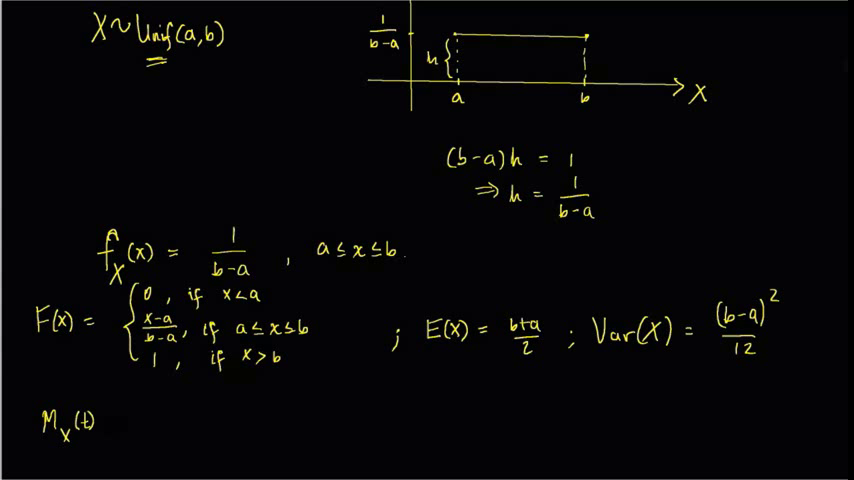 X ~ Unif(a,b)
1/(b-a)
h
a b X
(b-a)h = 1
⇒ h = 1/(b-a)
f_X(x) = 1/(b-a) , a ≤ x ≤ b.
F(x) = { 0 , if x < a
(x-a)/(b-a) , if a ≤ x ≤ b ; E(X) = (b+a)/2 ; Var(X) = (b-a)^2/12
1 , if x > b
M_X(t)